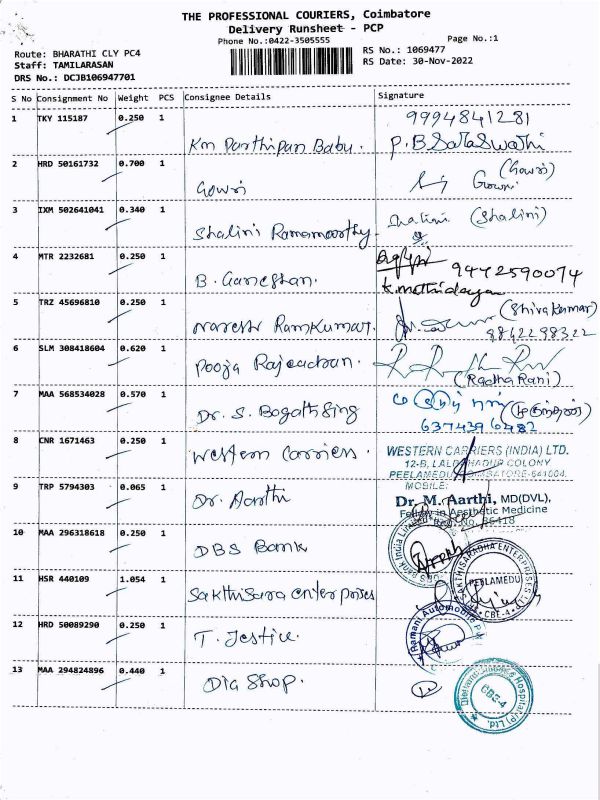 THE PROFESSIONAL COURIERS, Coimbatore
Delivery Runsheet - PCP
Phone No.:0422-3505555
Page No.:1
Route: BHARATHI CLY PC4
Staff: TAMILARASAN
DRS No.: DCJB106947701
RS No.: 1069477
RS Date: 30-Nov-2022
S No Consignment No Weight PCS Consignee Details Signature
1 TKY 115187 0.250 1 Km Parthipan Babu. 9994841281
P.B Saraswathi
2 HRD 50161732 0.700 1 Gowri (Gowri)
Gowri
3 IXM 502641041 0.340 1 Shalini Ramamoorthy Shalini (Shalini)
4 MTR 2232681 0.250 1 B. Ganeshan. 9442590074
K.Mathidayan
5 TRZ 45696810 0.250 1 Naresh RamKumar. (Shiva Kumar)
8842298322
6 SLM 308418604 0.620 1 Pooja
(Radha Rani)
7 MAA 568534028 0.570 1 Dr. S. Bogath Sing
6374396482
8 CNR 1671463 0.250 1 Western Carriers. WESTERN CARRIERS (INDIA) LTD.
12-B, LAL BAHADUR COLONY
PEELAMEDU, COIMBATORE-641004.
MOBILE:
9 TRP 5794303 0.065 1 Dr. Aarthi Dr. M. Aarthi, MD(DVL),
Fellow in Aesthetic Medicine
Reg. No. 86418
10 MAA 296318618 0.250 1 DBS Bank DBS Bank India Limited
11 HSR 440109 1.054 1 Sakthisara enterprises SAKTHISARADHA ENTERPRISES
PEELAMEDU
CBE-4
12 HRD 50089290 0.250 1 T. Jestice. Ramani Automobile
13 MAA 294824896 0.440 1 Dia Shop. Hospital (P) Ltd.
CBE-4